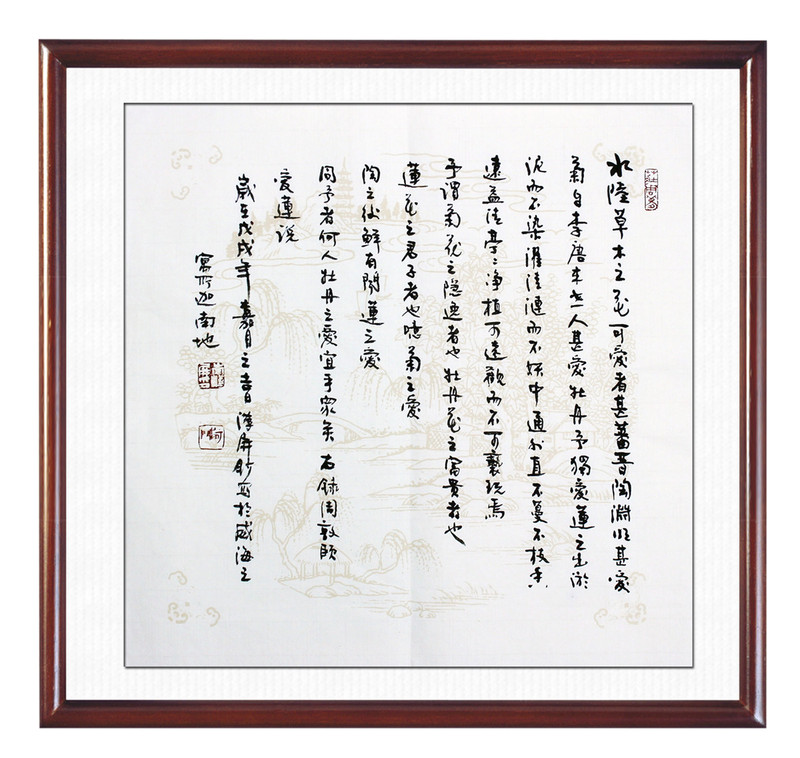 水陸草木之花可愛者甚蕃晋陶淵明甚愛
菊自李唐来世人甚愛牡丹予獨愛蓮之出淤
泥而不染濯清漣而不妖中通外直不蔓不枝香
遠益清亭亭净植可遠觀而不可褻玩焉
予謂菊花之隐逸者也牡丹花之富貴者也
蓮花之君子者也噫菊之愛
陶之後鮮有聞蓮之愛
同予者何人牡丹之愛宜乎衆矣右録周敦頤
愛蓮説
歲在戊戌年嘉月之吉日漢屏鈔寫於威海之
寓所迦南地